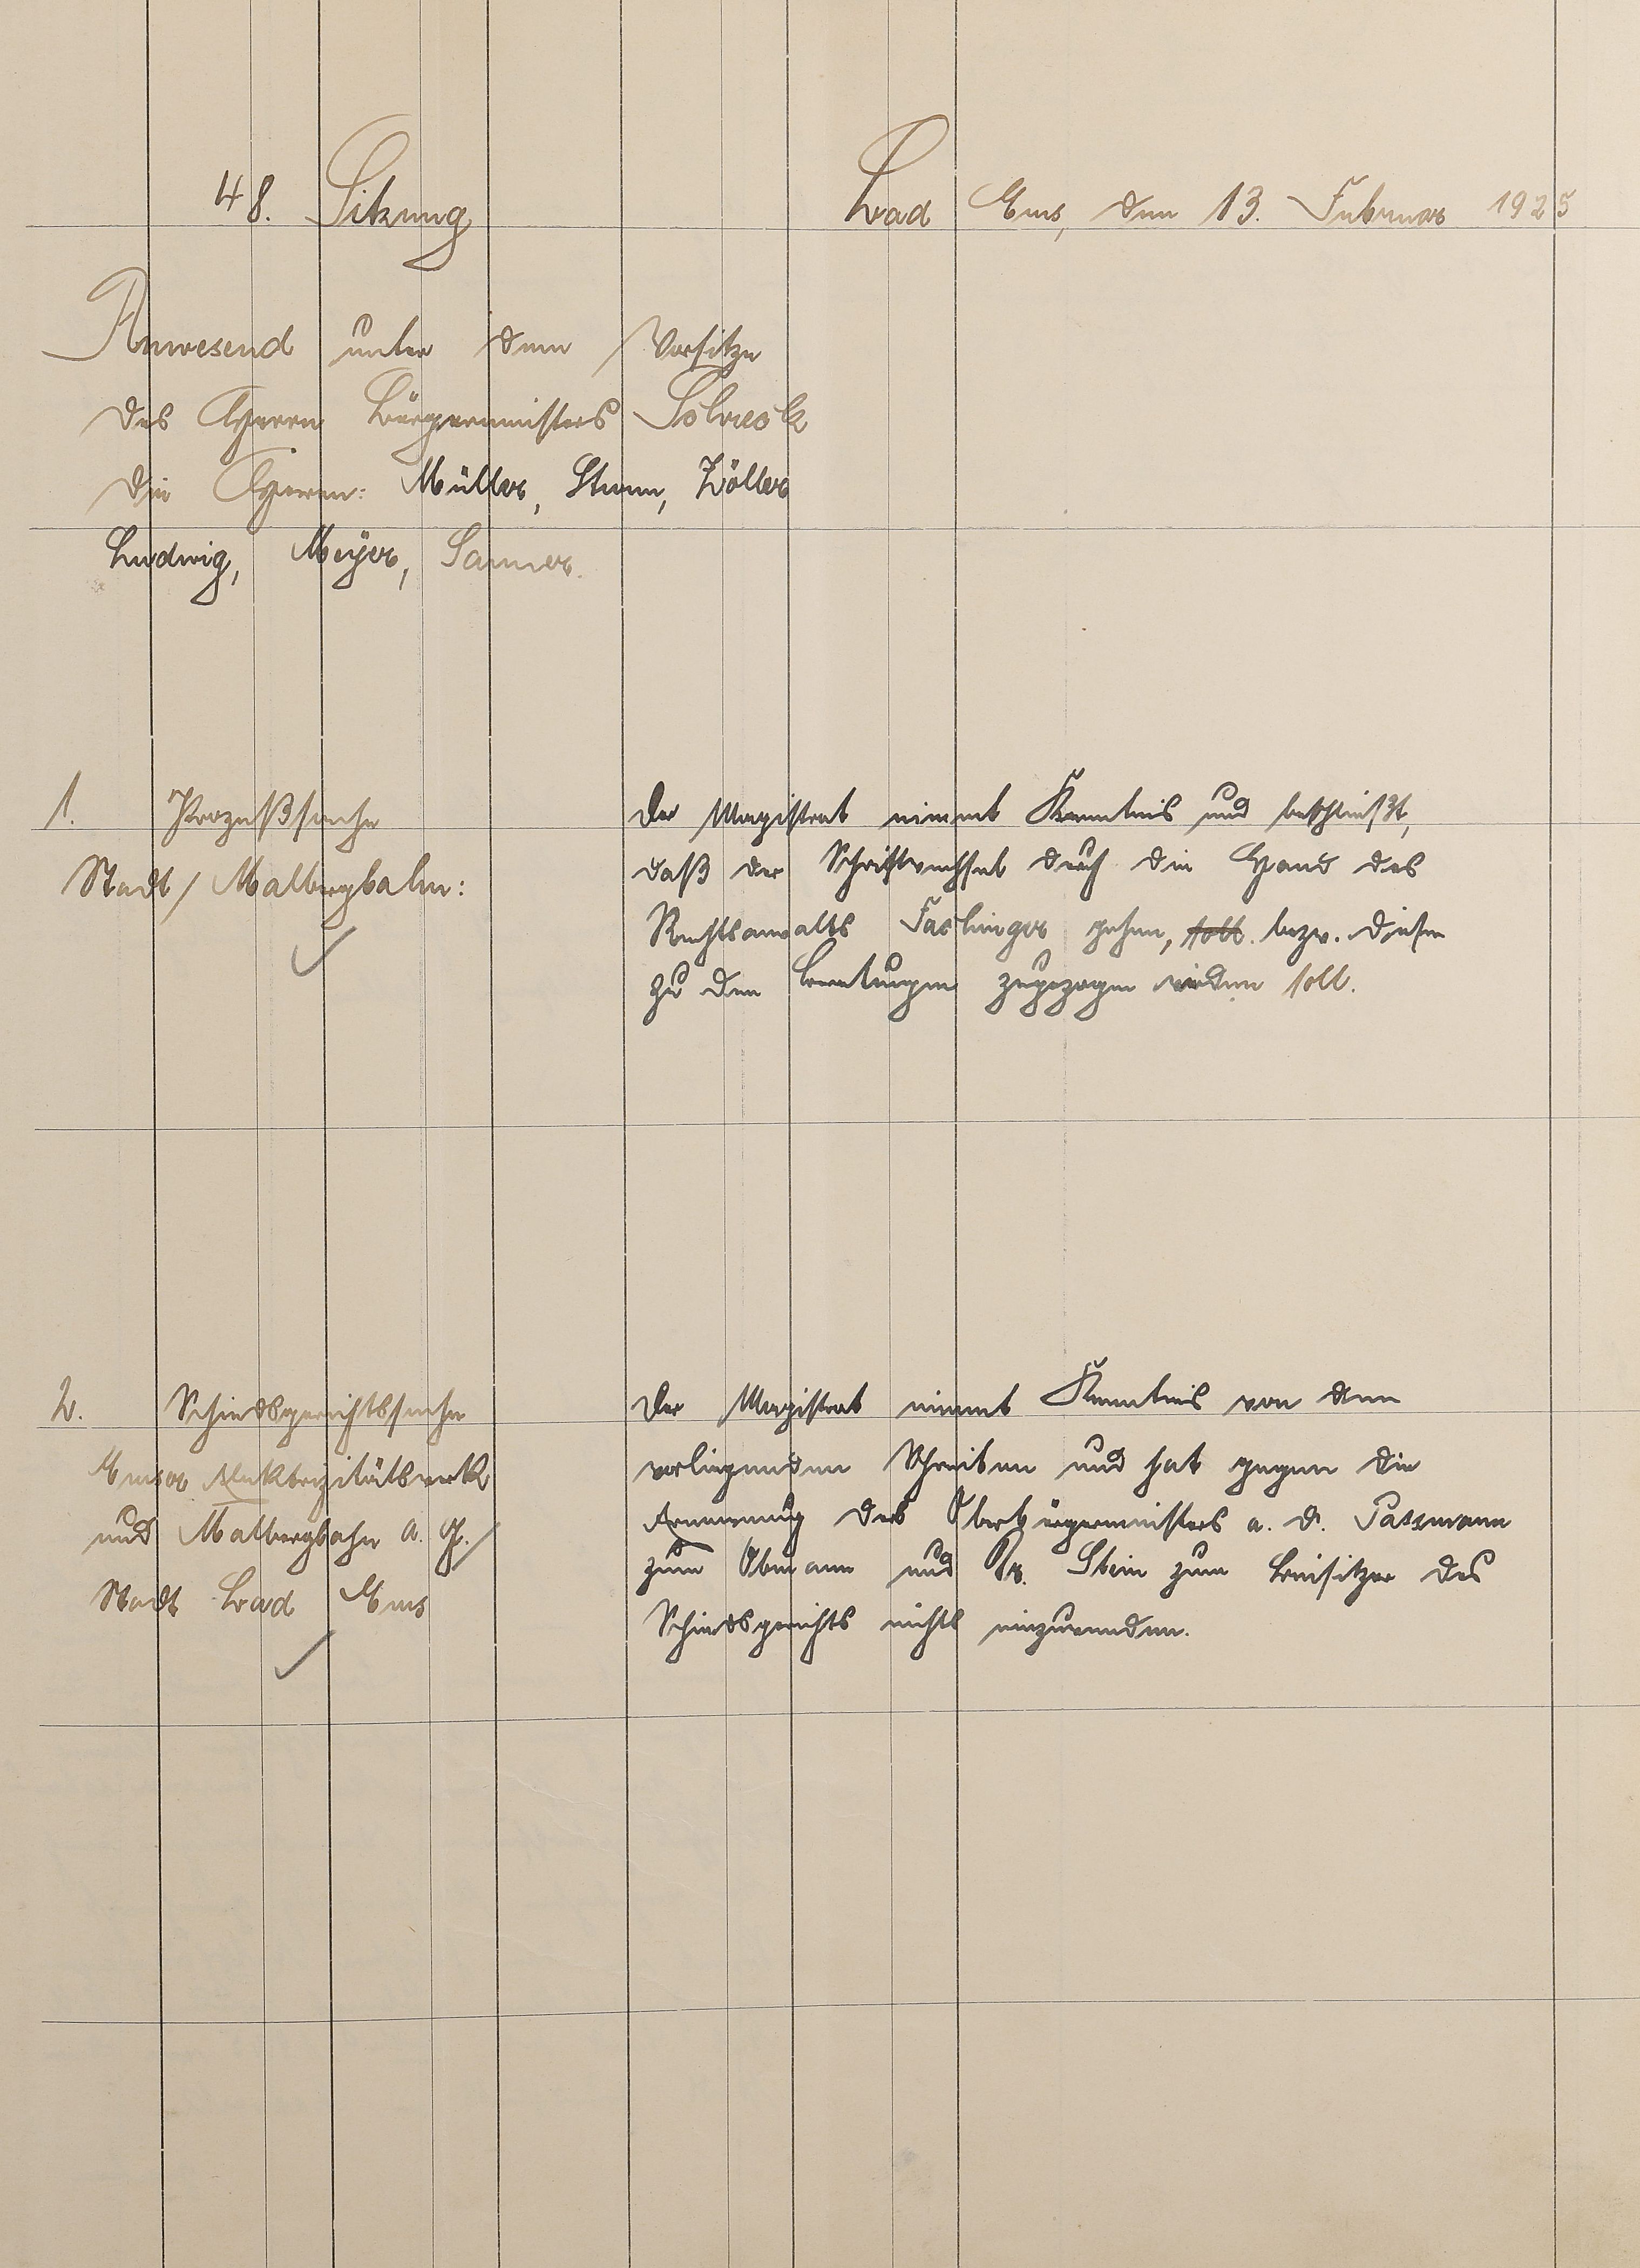 48. Sitzung
Bad Ems, den 13. Februar 1925
Anwesend unter dem Vorsitze
des Herrn Bürgermeisters
die Herren: Müller, Zöller
Ludwig, Meyer,
1. Prozeßsache
Stadt / Malbergbahn:
Der Magistrat nimmt Kenntnis und beschließt,
daß der Schriftwechsel durch die Hand des
Rechtsanwalts Faslinger gehen, soll. bezw. dieser
zu den Beratungen zugezogen werden soll.
2. Schiedsgerichtssache
Emser Elektrizitätswerk
und Malbergbahn A. G. /
Stadt Bad Ems
Der Magistrat nimmt Kenntnis von dem
vorliegenden Schreiben und hat gegen die
Ernennung des Oberbürgermeisters a. D. Passmann
zum Obmann und Dr. Stein zum Beisitzer des
Schiedsgerichts nichts einzuwenden.